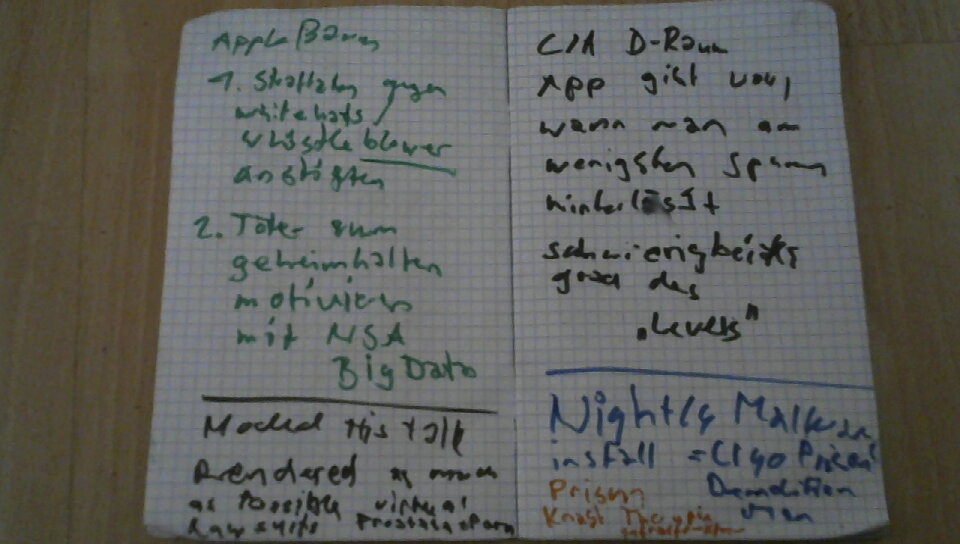 Apple Baum
1. Straftaten gegen
whitehats /
whistle blower
anstiften
2. Täter zum
geheimhalten
motivieren
mit NSA
Big Data
this talk
Rendered as much
as Possible virtual
Law suits
CIA D-Raum
App gibt vor,
wann man am
wenigsten Spuren
hinterlässt
schwierigkeits
grad des
„Levels"
Nightly Malware
install = Cryo Prison
Prison Demolition
Knast Therapie Man